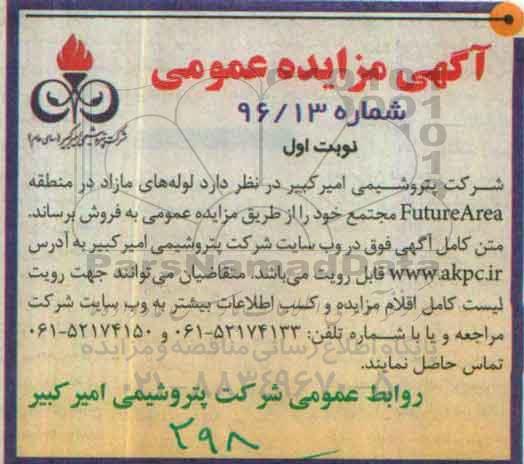 آگهی مزایده عمومی
شماره ۹۶/۱۳
نوبت اول
شرکت پتروشیمی امیرکبیر (سهامی عام)
شرکت پتروشیمی امیرکبیر در نظر دارد لوله‌های مازاد در منطقه
FutureArea مجتمع خود را از طریق مزایده عمومی به فروش برساند.
متن کامل آگهی فوق در وب سایت شرکت پتروشیمی امیرکبیر به آدرس
www.akpc.ir قابل رویت می‌باشد. متقاضیان می‌توانند جهت رویت
لیست کامل اقلام مزایده و کسب اطلاعات بیشتر به وب سایت شرکت
مراجعه و یا با شماره تلفن: ۵۲۱۷۴۱۳۳-۰۶۱ و ۵۲۱۷۴۱۵۰-۰۶۱
تماس حاصل نمایند.
روابط عمومی شرکت پتروشیمی امیر کبیر
۲۹۸
ParsNamadData
پایگاه اطلاع رسانی مناقصه و مزایده
۰۲۱-۸۸۳۴۹۶۷۰-۵